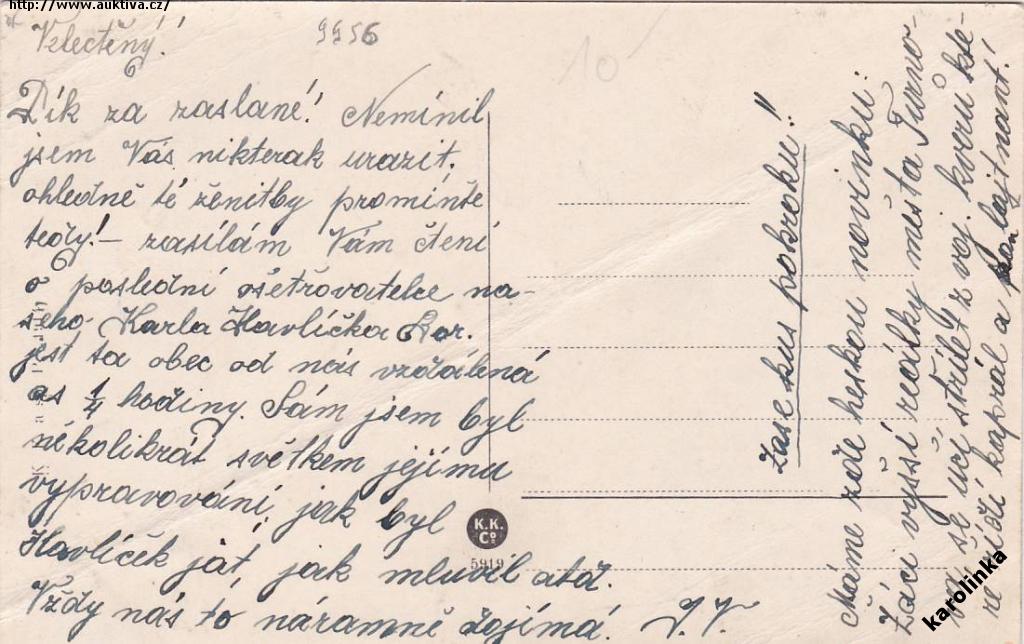 http://www.auktiva.cz/
Vzlectěný!
9956
10
Dík za zaslané! Nemínil
jsem Vás nikterak urazit,
ohledně té ženitby promiňte
tedy! – zasílám Vám čtení
o poslední ošetřovatelce na-
šeho Karla Havlíčka Bor.
jest ta obec od nás vzdálená
as ¼ hodiny. Sám jsem byl
několikrát světkem jejímu
vypravování, jak byl
Havlíček jat, jak mluvil atd.
Vždy nás to náramně dojímá. J.V.
K.K.
Co
5919
Zase kus pokroku!!
Máme zde heskou novinku:
Žáci vyšší reálky města Turno-
va se učí střílet z voj. kveru kte-
ré řídí kaprál a pan lajtnant.
karolinka